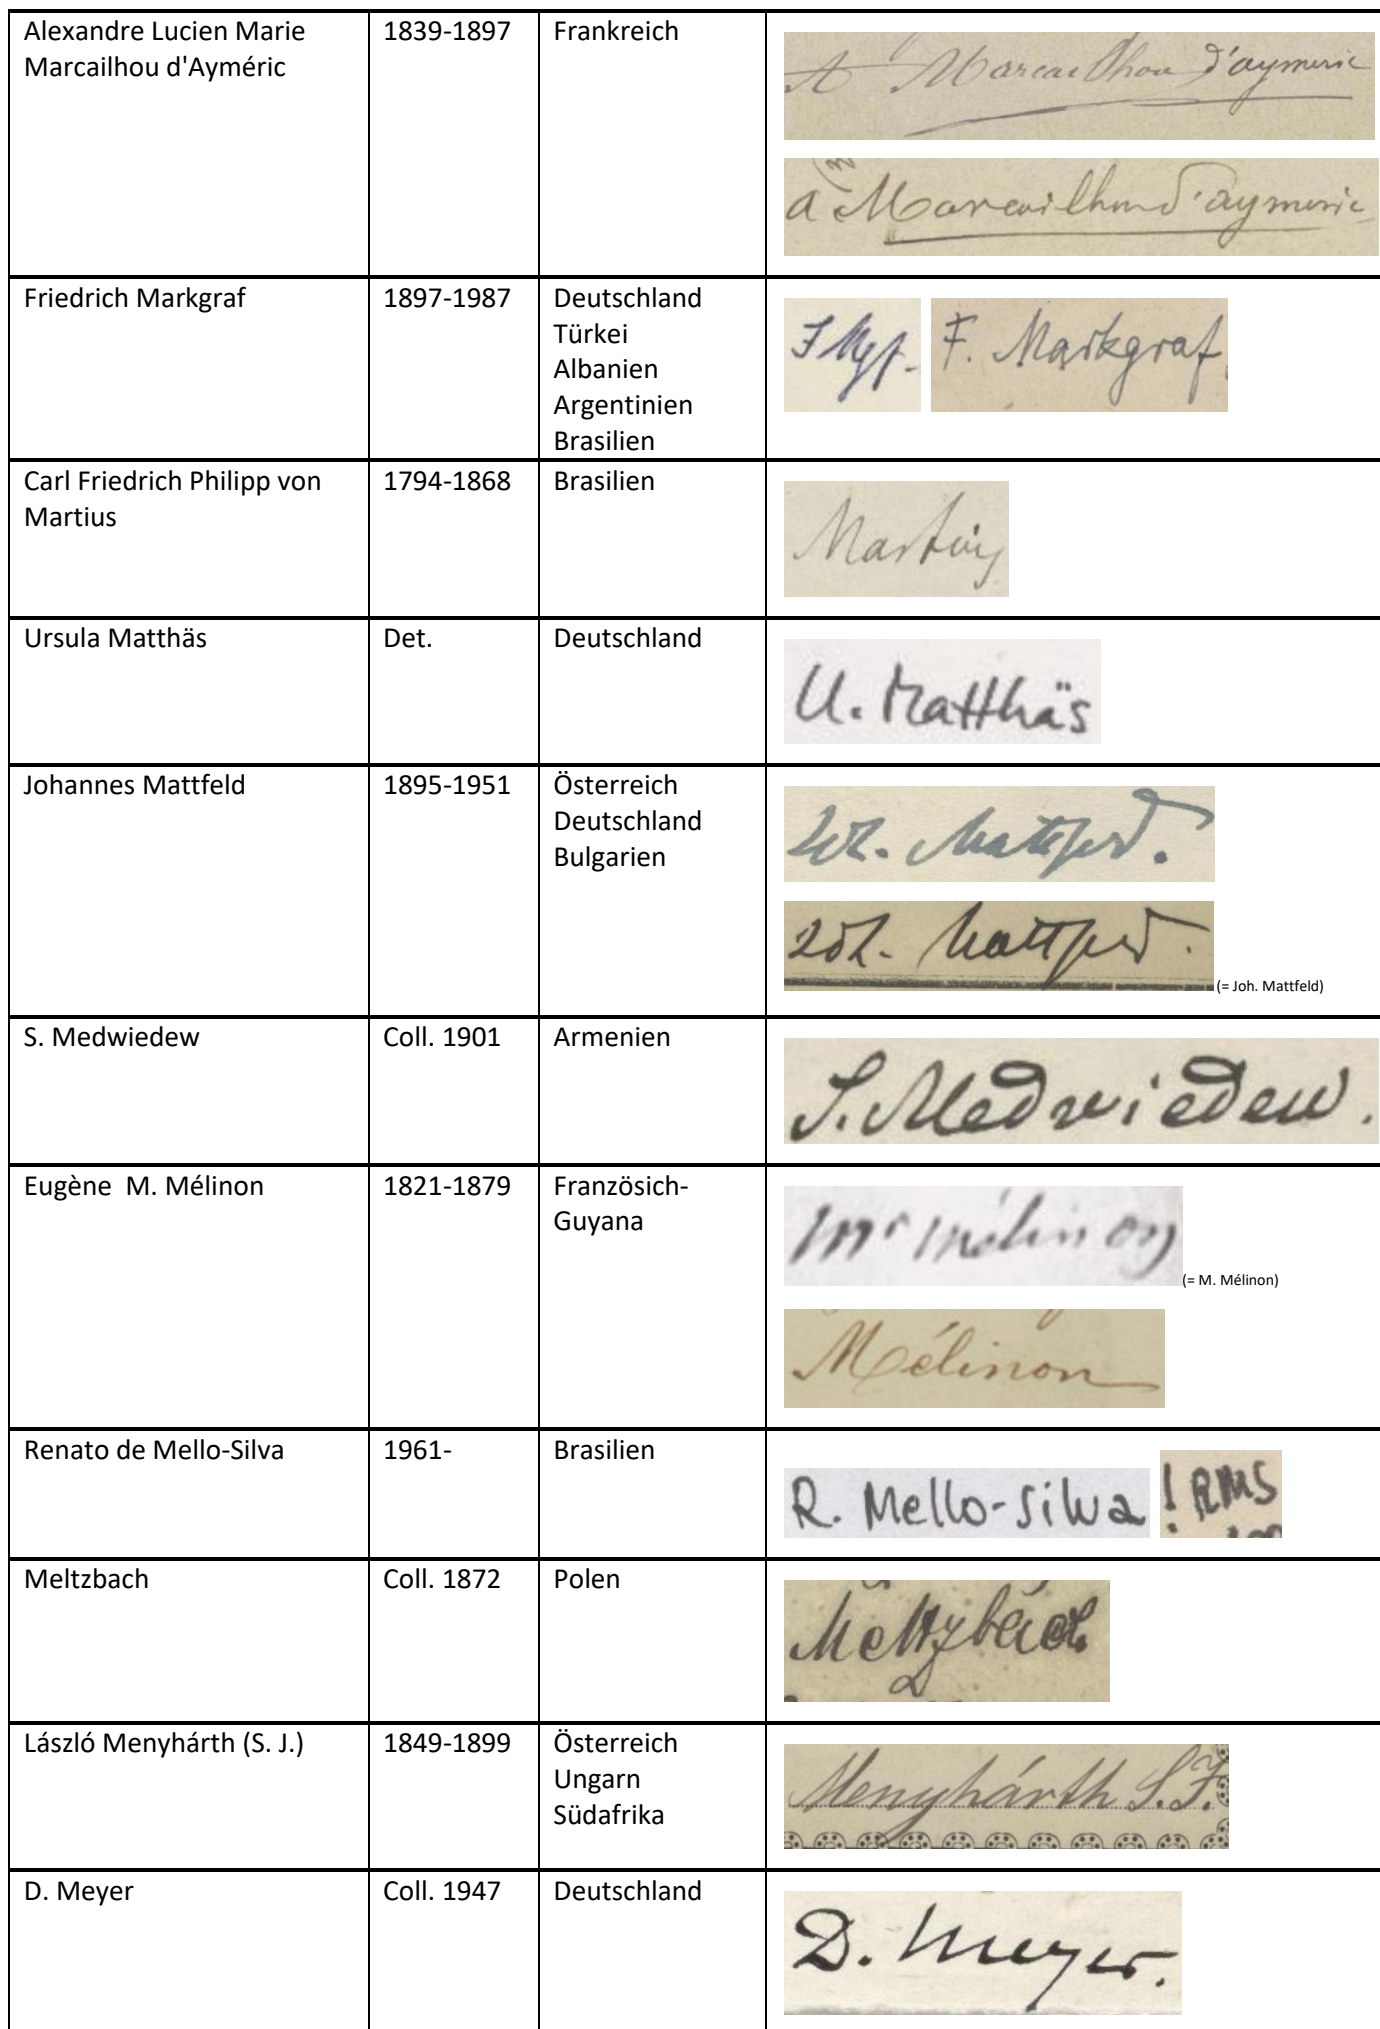 Alexandre Lucien Marie
Marcailhou d'Ayméric
1839-1897
Frankreich
A Marcailhou d'aymeric
a Marcailhou d'aymeric
Friedrich Markgraf
1897-1987
Deutschland
Türkei
Albanien
Argentinien
Brasilien
F Mgf.
F. Markgraf
Carl Friedrich Philipp von
Martius
1794-1868
Brasilien
Martius
Ursula Matthäs
Det.
Deutschland
U. Matthäs
Johannes Mattfeld
1895-1951
Österreich
Deutschland
Bulgarien
Joh. Mattfeld.
Joh. Mattfeld.
(= Joh. Mattfeld)
S. Medwiedew
Coll. 1901
Armenien
S. Medwiedew.
Eugène M. Mélinon
1821-1879
Französich-
Guyana
Mr Mélinon
(= M. Mélinon)
Mélinon
Renato de Mello-Silva
1961-
Brasilien
R. Mello-Silva
! RMS
Meltzbach
Coll. 1872
Polen
Meltzbach
László Menyhárth (S. J.)
1849-1899
Österreich
Ungarn
Südafrika
Menyhárth S.J.
D. Meyer
Coll. 1947
Deutschland
D. Meyer.